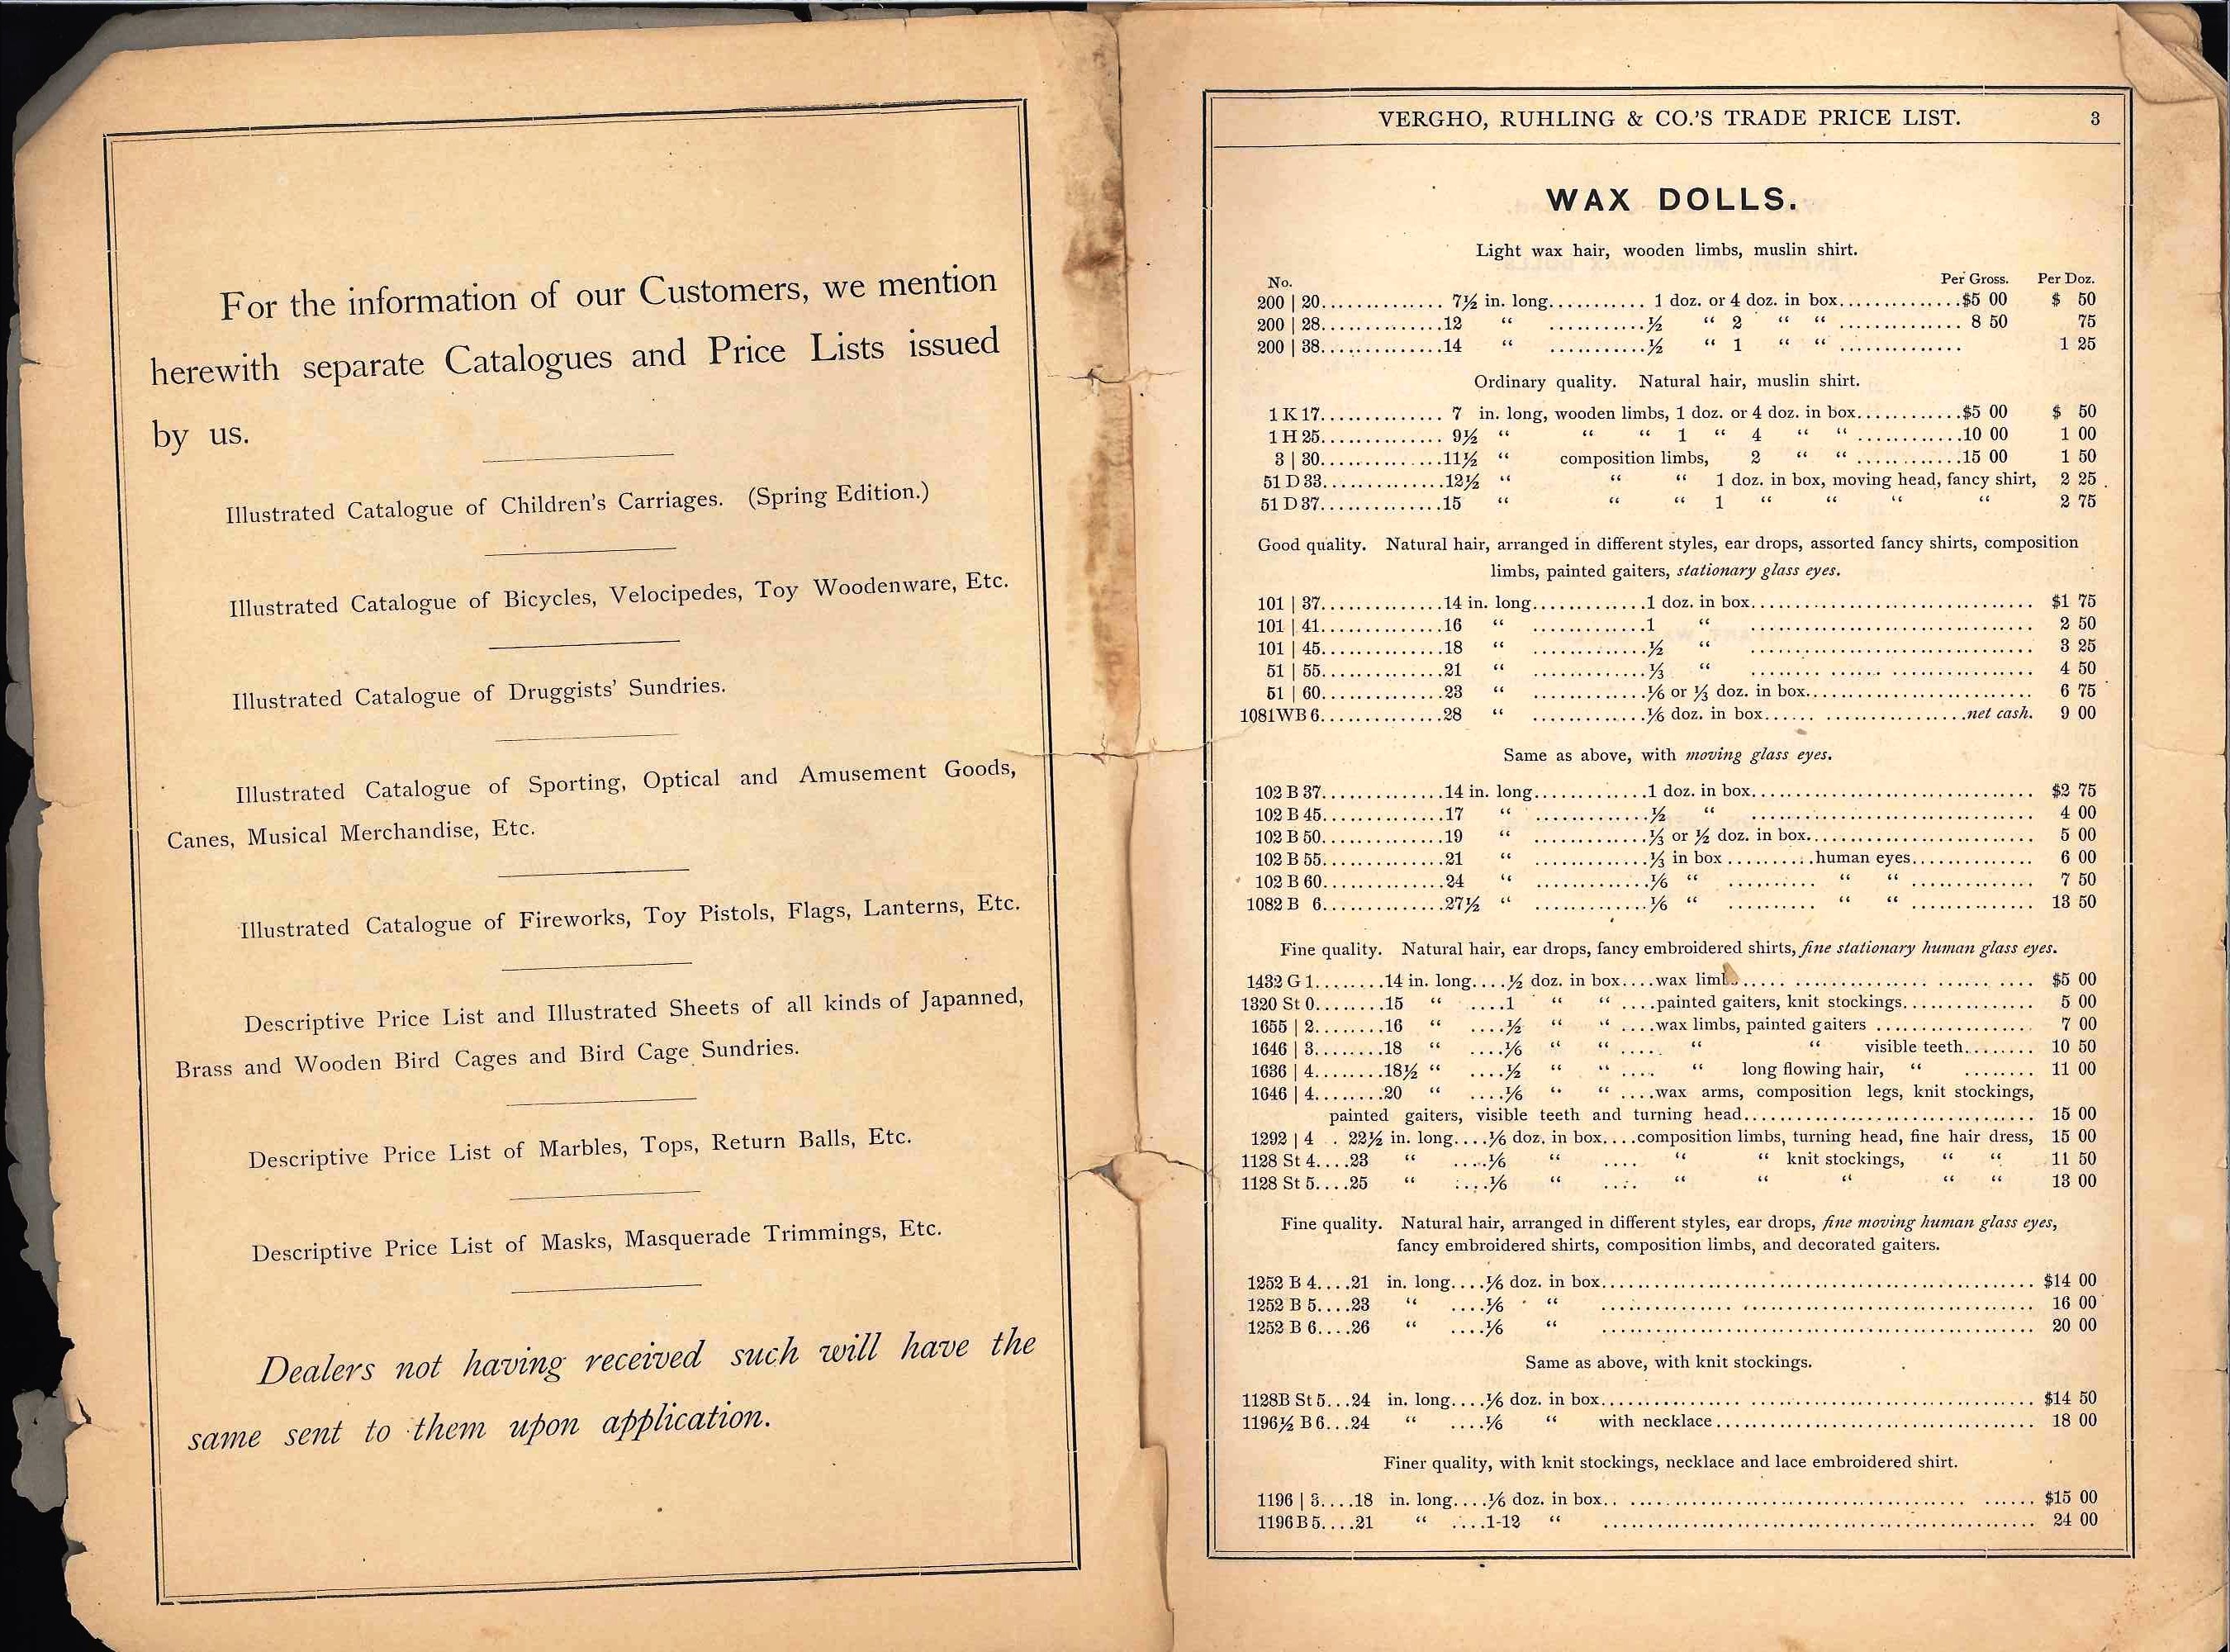 For the information of our Customers, we mention
herewith separate Catalogues and Price Lists issued
by us.
Illustrated Catalogue of Children's Carriages. (Spring Edition.)
Illustrated Catalogue of Bicycles, Velocipedes, Toy Woodenware, Etc.
Illustrated Catalogue of Druggists' Sundries.
Illustrated Catalogue of Sporting, Optical and Amusement Goods,
Canes, Musical Merchandise, Etc.
Illustrated Catalogue of Fireworks, Toy Pistols, Flags, Lanterns, Etc.
Descriptive Price List and Illustrated Sheets of all kinds of Japanned,
Brass and Wooden Bird Cages and Bird Cage Sundries.
Descriptive Price List of Marbles, Tops, Return Balls, Etc.
Descriptive Price List of Masks, Masquerade Trimmings, Etc.
Dealers not having received such will have the
same sent to them upon application.
VERGHO, RUHLING & CO.'S TRADE PRICE LIST. 3
WAX DOLLS.
Light wax hair, wooden limbs, muslin shirt.
No. Per Gross. Per Doz.
200 | 20.............. 7½ in. long........... 1 doz. or 4 doz. in box..............$5 00 $ 50
200 | 28..............12 “ ...........½ “ 2 “ “ .............. 8 50 75
200 | 38..............14 “ ...........½ “ 1 “ “ .............. 1 25
Ordinary quality. Natural hair, muslin shirt.
1 K 17.............. 7 in. long, wooden limbs, 1 doz. or 4 doz. in box............$5 00 $ 50
1 H 25.............. 9½ “ “ “ 1 “ 4 “ “ ............10 00 1 00
3 | 30..............11½ “ composition limbs, 2 “ “ ............15 00 1 50
51 D 33..............12½ “ “ “ 1 doz. in box, moving head, fancy shirt, 2 25
51 D 37..............15 “ “ “ 1 “ “ “ “ 2 75
Good quality. Natural hair, arranged in different styles, ear drops, assorted fancy shirts, composition
limbs, painted gaiters, stationary glass eyes.
101 | 37..............14 in. long.............1 doz. in box................................. $1 75
101 | 41..............16 “ .............1 “ ................................. 2 50
101 | 45..............18 “ .............½ “ ................................. 3 25
51 | 55..............21 “ .............⅓ “ ................................. 4 50
51 | 60..............23 “ .............⅙ or ⅓ doz. in box.......................... 6 75
1081WB 6..............28 “ .............⅙ doz. in box...... .................net cash. 9 00
Same as above, with moving glass eyes.
102 B 37..............14 in. long.............1 doz. in box................................. $2 75
102 B 45..............17 “ .............½ “ ................................. 4 00
102 B 50..............19 “ .............⅓ or ½ doz. in box.......................... 5 00
102 B 55..............21 “ .............⅓ in box ..........human eyes.............. 6 00
102 B 60..............24 “ .............⅙ “ .......... “ “ .............. 7 50
1082 B 6..............27½ “ .............⅙ “ .......... “ “ .............. 13 50
Fine quality. Natural hair, ear drops, fancy embroidered shirts, fine stationary human glass eyes.
1432 G 1........14 in. long....½ doz. in box....wax limbs..... ................ ...... .... $5 00
1320 St 0........15 “ .....1 “ “ ....painted gaiters, knit stockings............... 5 00
1655 | 2........16 “ ....½ “ “ ....wax limbs, painted gaiters .................. 7 00
1646 | 3........18 “ ....⅙ “ “ ..... “ “ visible teeth........ 10 50
1636 | 4........18½ “ ....½ “ “ .... “ long flowing hair, “ ........ 11 00
1646 | 4........20 “ ....⅙ “ “ ....wax arms, composition legs, knit stockings,
painted gaiters, visible teeth and turning head.................................. 15 00
1292 | 4 . 22½ in. long....⅙ doz. in box....composition limbs, turning head, fine hair dress, 15 00
1128 St 4....23 “ ....⅙ “ .... “ “ knit stockings, “ “ 11 50
1128 St 5....25 “ ....⅙ “ .... “ “ “ “ “ 13 00
Fine quality. Natural hair, arranged in different styles, ear drops, fine moving human glass eyes,
fancy embroidered shirts, composition limbs, and decorated gaiters.
1252 B 4....21 in. long....⅙ doz. in box.................................................. $14 00
1252 B 5....23 “ ....⅙ “ .................................................. 16 00
1252 B 6....26 “ ....⅙ “ .................................................. 20 00
Same as above, with knit stockings.
1128B St 5...24 in. long....⅙ doz. in box................ ................................. $14 50
1196½ B 6...24 “ ....⅙ “ with necklace..................................... 18 00
Finer quality, with knit stockings, necklace and lace embroidered shirt.
1196 | 3....18 in. long....⅙ doz. in box.. ....................................... ...... $15 00
1196 B 5....21 “ ....1-12 “ .................................................. 24 00